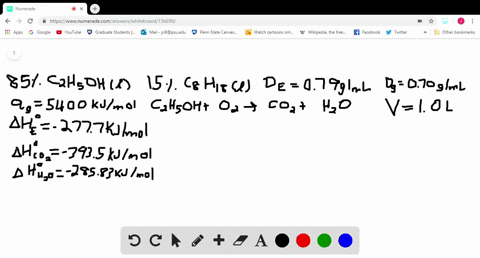 Numerade
https://www.numerade.com/answers/whiteboard/136698/
Apps
YouTube
Graduate Students J
Amazon
Email - jri8@psu.edu
Penn State Canvas
Watch cartoons onli
Wikipedia, the free
1
85% C2H5OH(l) 15% C8H18(l) DE=0.79g/mL Dg=0.70g/mL
qg=5400 KJ/mol C2H5OH+ O2 → CO2 + H2O V=1.0L
ΔH°E=-277.7KJ/mol
ΔH°CO2=-393.5KJ/mol
ΔH°H2O=-285.83KJ/mol
A